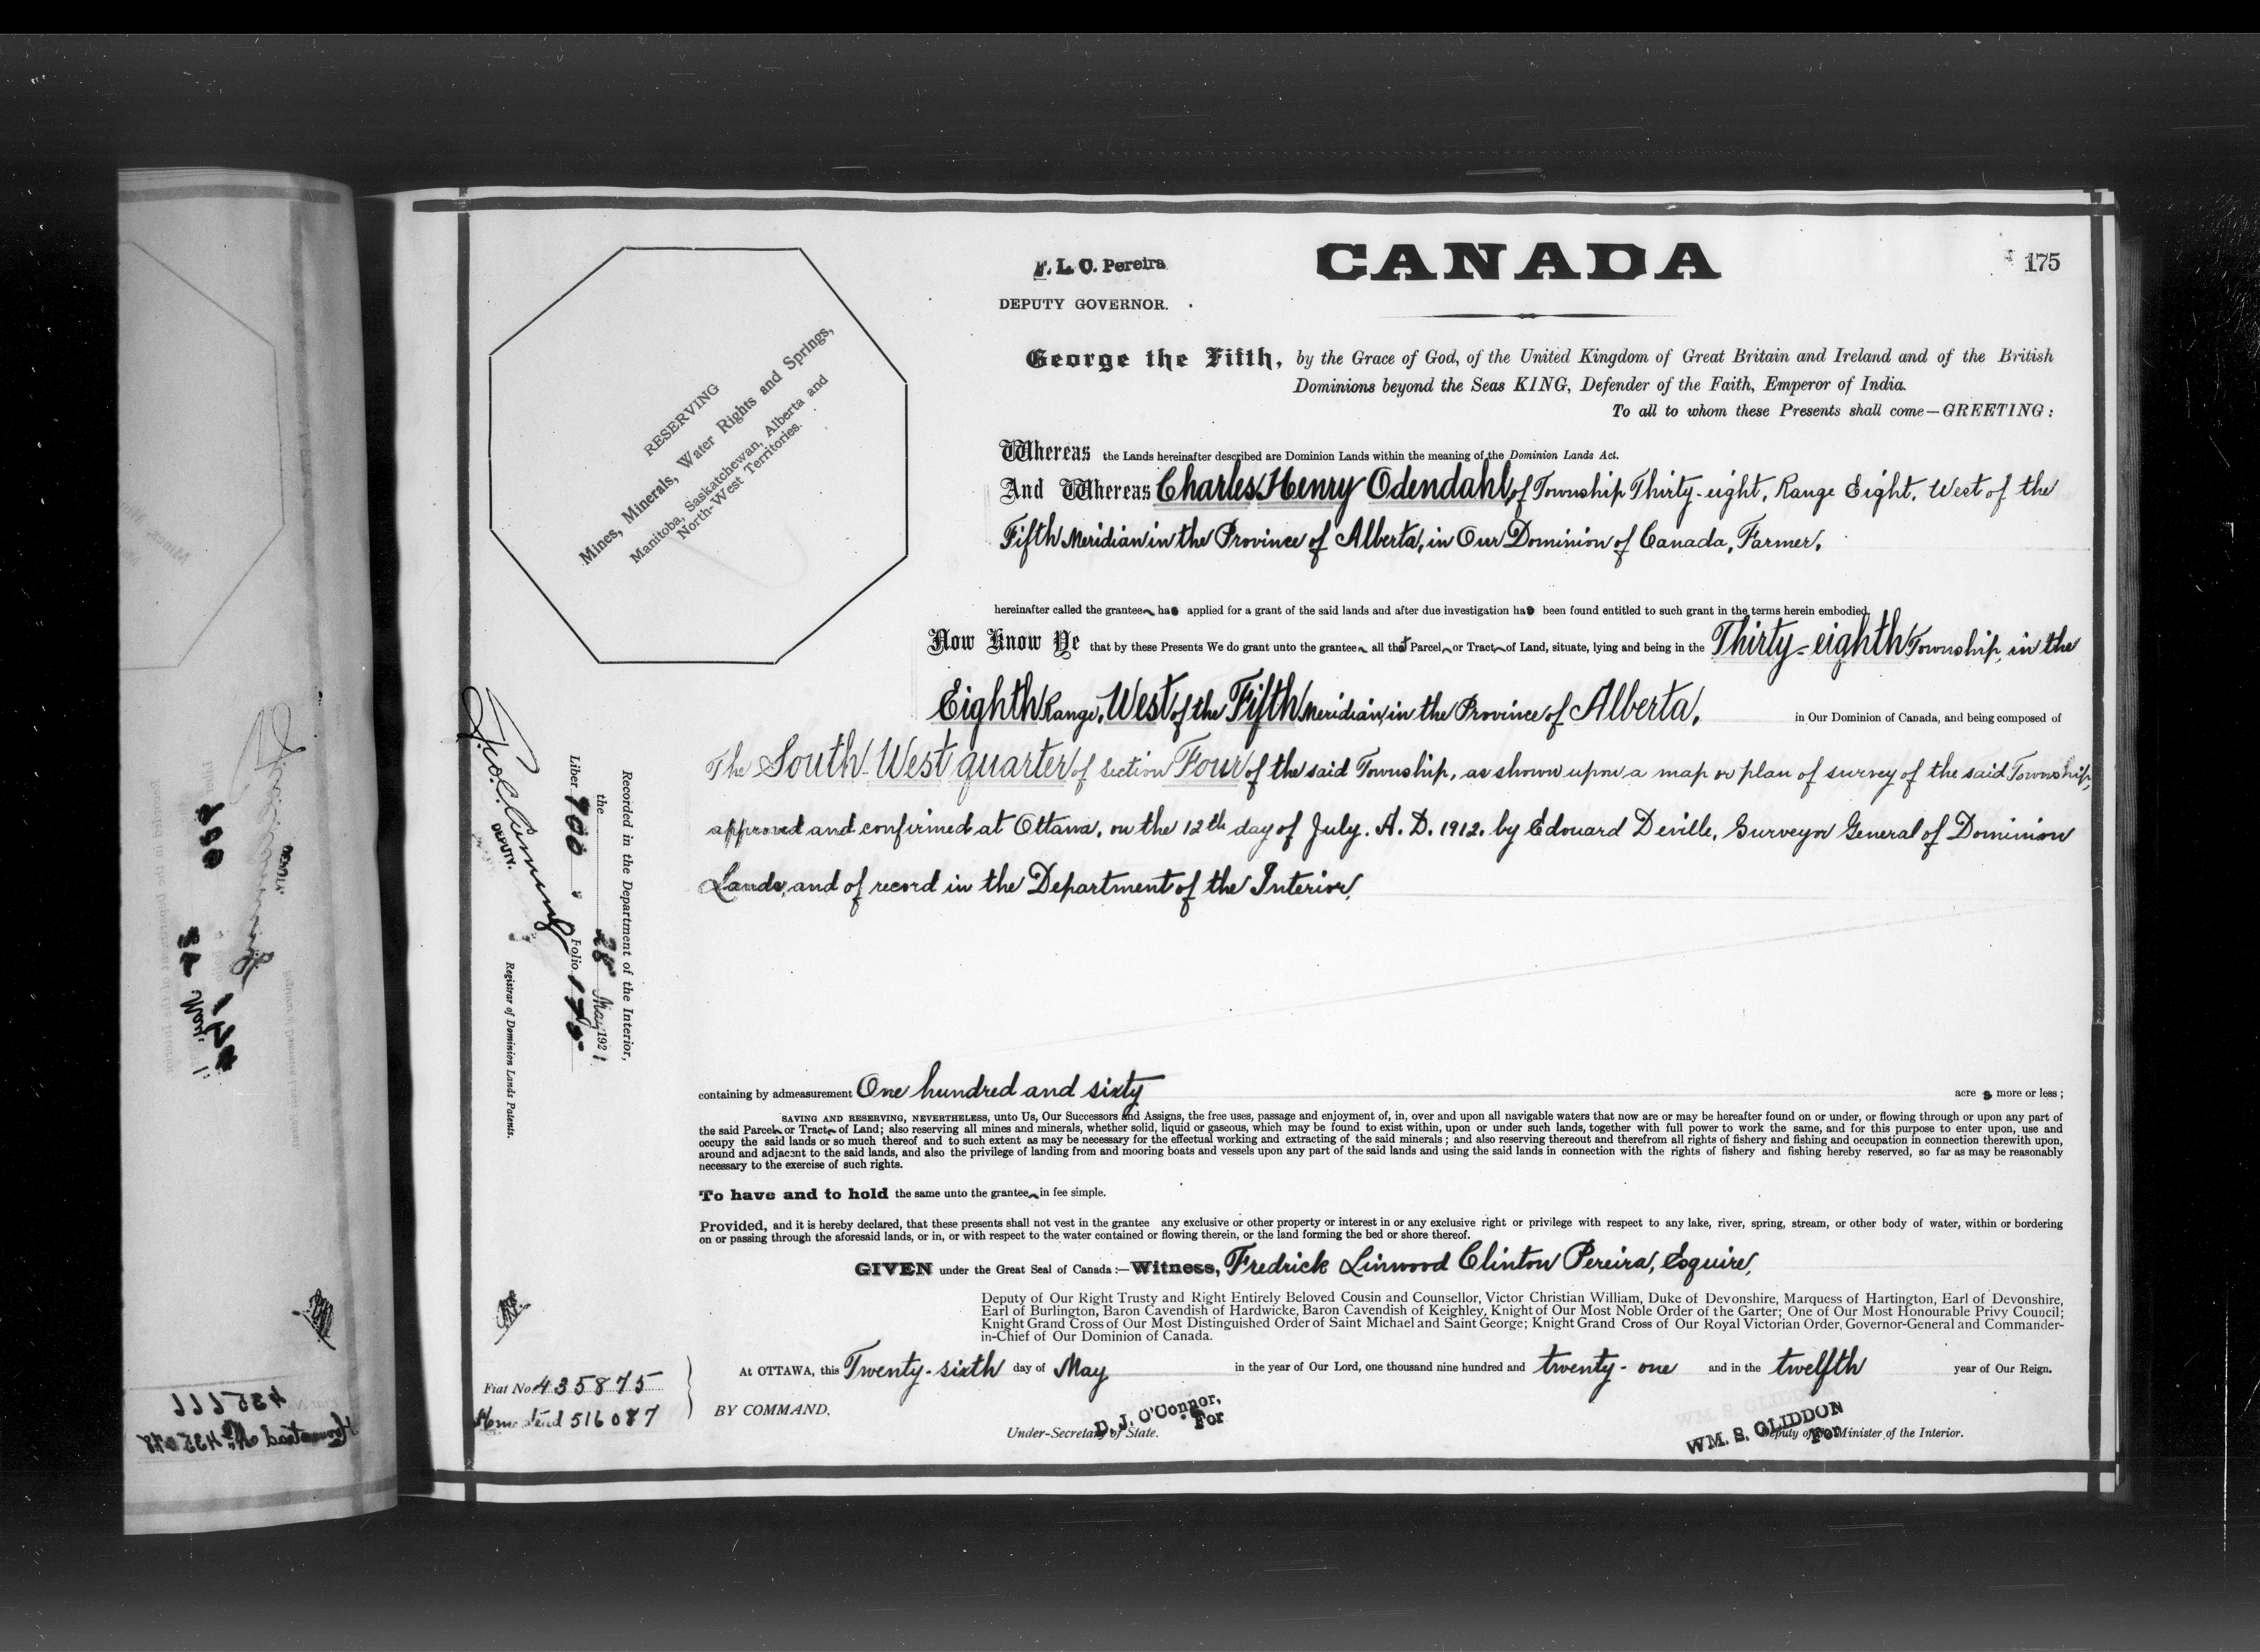 CANADA
175
F. L. C. Pereira
DEPUTY GOVERNOR.
RESERVING
Mines, Minerals, Water Rights and Springs,
Manitoba, Saskatchewan, Alberta and
North-West Territories.
George the Fifth, by the Grace of God, of the United Kingdom of Great Britain and Ireland and of the British
Dominions beyond the Seas KING, Defender of the Faith, Emperor of India.
To all to whom these Presents shall come—GREETING:
Whereas the Lands hereinafter described are Dominion Lands within the meaning of the Dominion Lands Act.
And Whereas Charles Henry Odendahl, of Township Thirty-eight, Range Eight, West of the
Fifth Meridian in the Province of Alberta, in Our Dominion of Canada, Farmer,
hereinafter called the grantee has applied for a grant of the said lands and after due investigation has been found entitled to such grant in the terms herein embodied,
Now Know Ye that by these Presents We do grant unto the grantee all that Parcel or Tract of Land, situate, lying and being in the Thirty-eighth Township, in the
Eighth Range, West of the Fifth Meridian, in the Province of Alberta, in Our Dominion of Canada, and being composed of
The South West quarter of Section Four of the said Township, as shown upon a map or plan of survey of the said Township,
approved and confirmed at Ottawa, on the 12th day of July. A. D. 1912. by Edouard Deville, Surveyor General of Dominion
Lands, and of record in the Department of the Interior,
containing by admeasurement One hundred and sixty acres more or less;
SAVING AND RESERVING, NEVERTHELESS, unto Us, Our Successors and Assigns, the free uses, passage and enjoyment of, in, over and upon all navigable waters that now are or may be hereafter found on or under, or flowing through or upon any part of
the said Parcel or Tract of Land; also reserving all mines and minerals, whether solid, liquid or gaseous, which may be found to exist within, upon or under such lands, together with full power to work the same, and for this purpose to enter upon, use and
occupy the said lands or so much thereof and to such extent as may be necessary for the effectual working and extracting of the said minerals; and also reserving thereout and therefrom all rights of fishery and fishing and occupation in connection therewith upon,
around and adjacent to the said lands, and also the privilege of landing from and mooring boats and vessels upon any part of the said lands and using the said lands in connection with the rights of fishery and fishing hereby reserved, so far as may be reasonably
necessary to the exercise of such rights.
To have and to hold the same unto the grantee in fee simple.
Provided, and it is hereby declared, that these presents shall not vest in the grantee any exclusive or other property or interest in or any exclusive right or privilege with respect to any lake, river, spring, stream, or other body of water, within or bordering
on or passing through the aforesaid lands, or in, or with respect to the water contained or flowing therein, or the land forming the bed or shore thereof.
GIVEN under the Great Seal of Canada:—Witness, Fredrick Linwood Clinton Pereira, Esquire,
Deputy of Our Right Trusty and Right Entirely Beloved Cousin and Counsellor, Victor Christian William, Duke of Devonshire, Marquess of Hartington, Earl of Devonshire,
Earl of Burlington, Baron Cavendish of Hardwicke, Baron Cavendish of Keighley, Knight of Our Most Noble Order of the Garter; One of Our Most Honourable Privy Council;
Knight Grand Cross of Our Most Distinguished Order of Saint Michael and Saint George; Knight Grand Cross of Our Royal Victorian Order, Governor-General and Commander-
in-Chief of Our Dominion of Canada.
At OTTAWA, this Twenty-sixth day of May in the year of Our Lord, one thousand nine hundred and twenty-one and in the twelfth year of Our Reign.
BY COMMAND,
D. J. O'Connor,
For
Under-Secretary of State.
WM. S. GLIDDON
For
Deputy of the Minister of the Interior.
Fiat No. 435875
Homestead 516087
Recorded in the Department of the Interior,
the 28 May 1921
Liber 700 Folio 175
DEPUTY.
Registrar of Dominion Lands Patents.